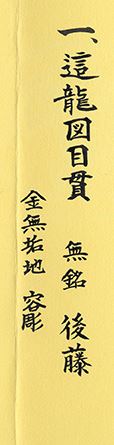 一、這龍図目貫　無銘　後藤
金無垢地　容彫